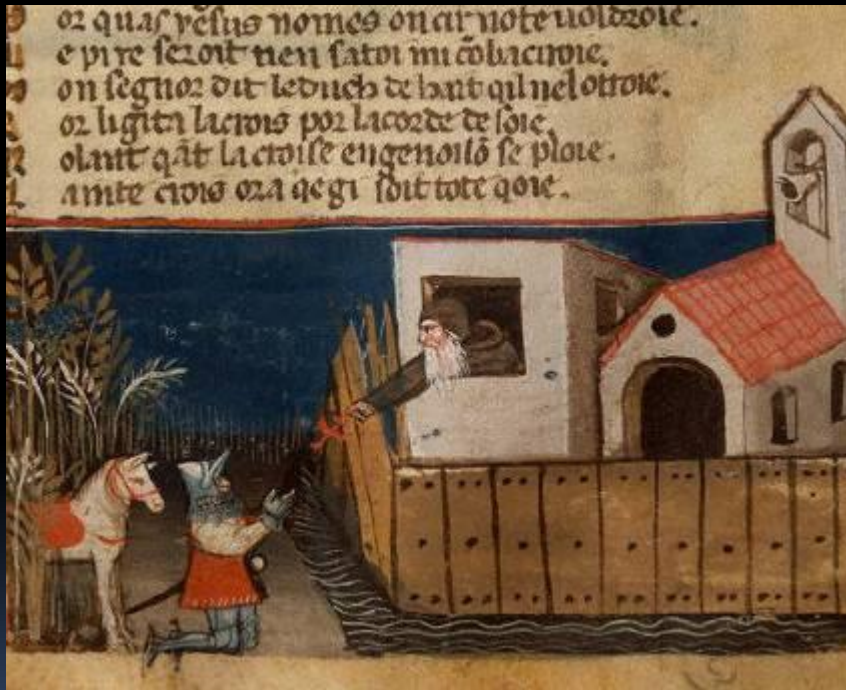 or quas yesus nomes on cir note uoldroie.
e pire seroit nen satoi mi cōbatroie.
on segnor dit leduch de bait qil nel ottroie.
or ligita lacrois por lacorde de soie.
olant qāt la croise engenoilō se ploie.
ainte crois ora qe gi soit tote qoie.